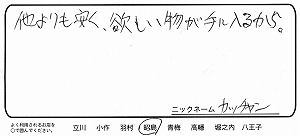 他よりも安く、欲しい物が手に入るから。
ニックネーム カッチャン
よく利用されるお店を
○で囲んでください。
立川 小作 羽村 昭島 青梅 高幡 堀之内 八王子